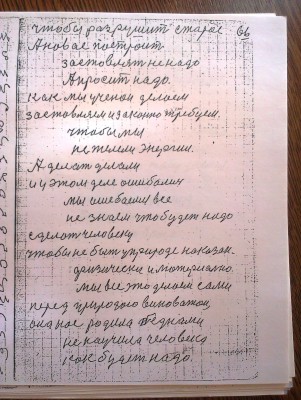 чтобы разрушит старое 66
А новае построит
заставлят не надо
А просит надо.
как мы ученои делаем
заставляем и законно требуем.
чтобы мы
не темели энергии.
А делат делали
и и у этом деле ошибалис
мы ошебаемс все
не знаем что будет надо
сделат человеку
чтобы не быт у природе наказан.
физически и материално.
мы все это делаем сами
перед природою виноватои
она нас родила беднами
не научила человека
как будет надо.